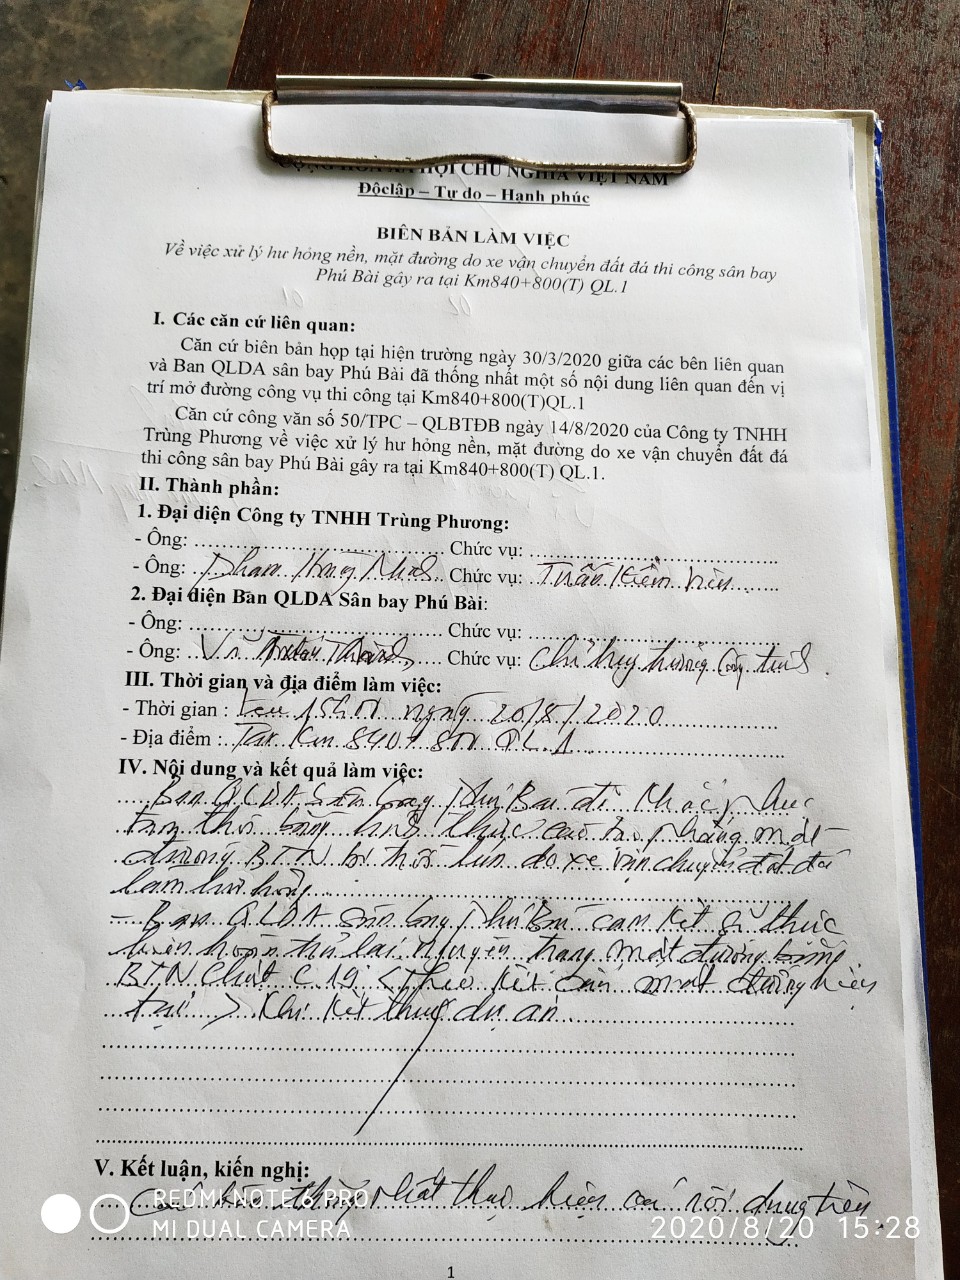 CỘNG HÒA XÃ HỘI CHỦ NGHĨA VIỆT NAM
Độclập – Tự do – Hạnh phúc
BIÊN BẢN LÀM VIỆC
Về việc xử lý hư hỏng nền, mặt đường do xe vận chuyển đất đá thi công sân bay
Phú Bài gây ra tại Km840+800(T) QL.1
I. Các căn cứ liên quan:
Căn cứ biên bản họp tại hiện trường ngày 30/3/2020 giữa các bên liên quan
và Ban QLDA sân bay Phú Bài đã thống nhất một số nội dung liên quan đến vị
trí mở đường công vụ thi công tại Km840+800(T)QL.1
Căn cứ công văn số 50/TPC – QLBTĐB ngày 14/8/2020 của Công ty TNHH
Trùng Phương về việc xử lý hư hỏng nền, mặt đường do xe vận chuyển đất đá
thi công sân bay Phú Bài gây ra tại Km840+800(T) QL.1.
II. Thành phần:
1. Đại diện Công ty TNHH Trùng Phương:
- Ông: Chức vụ:
- Ông: Phạm Chức vụ: Tuần Kiểm viên
2. Đại diện Ban QLDA Sân bay Phú Bài:
- Ông: Chức vụ:
- Ông: Vũ Chức vụ: Chỉ huy trưởng Công trình
III. Thời gian và địa điểm làm việc:
- Thời gian : ngày 20/8/2020
- Địa điểm : Tại Km 840+800 QL.1
IV. Nội dung và kết quả làm việc:
Ban QLDA Sân bay Phú Bài đã khắc phục
tạm thời bằng hình thức cào bóc phẳng mặt
đường BTN bị trồi lún do xe vận chuyển đất đá
làm hư hỏng
- Ban QLDA sân bay Phú Bài cam kết sẽ thực
hiện hoàn trả lại nguyên trạng mặt đường bằng
BTN Chặt C19 <Theo kết cấu mặt đường hiện
tại> Khi kết thúc dự án
V. Kết luận, kiến nghị:
thống nhất thực hiện các nội dung trên
REDMI NOTE 6 PRO
MI DUAL CAMERA
2020/8/20 15:28
1